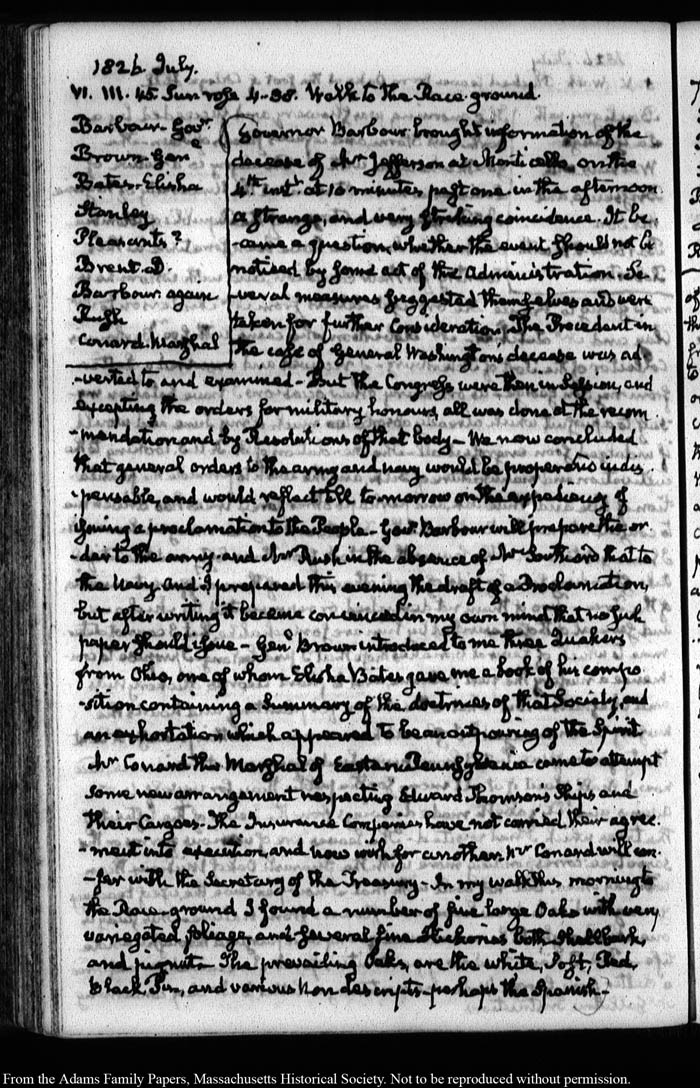 1826. July.
VI. III. 45 Sun rose 4-38. Walk to the Race-ground.
Barbour Govr.
Brown Genl
Bates-Elisha
Stanley
Pleasants?
Brent. D.
Barbour again
Rush
Conard. Marshal
Governor Barbour brought information of the
decease of Mr Jefferson at Monticello on the
4th. inst. at 10 minutes past one in the afternoon
a strange, and very striking coincidence. It be-
-came a question, whether the event should not be
noticed by some act of the Administration. Se-
-veral measures suggested themselves and were
taken for further consideration. The Precedent in
the case of General Washington's decease was ad-
-verted to and examined- But the Congress were then in Session, and
excepting the orders for military honours, all was done at the recom
-mendation and by Resolutions of that body- We now concluded
that general orders to the army and navy would be proper indis.
-pensable, and would reflect till to-morrow on the expediency of
issuing a proclamation to the People- Govr. Barbour will prepare the or
-der to the army and Mr Rush in the absence of Mr Southard that to
the Navy. And I prepared this evening the draft of a Proclamation,
but after writing it became convinced in my own mind that no such
paper should issue- Genl. Brown introduced to me three Quakers
from Ohio, one of whom Elisha Bates gave me a book of his compo
-sition containing a Summary of the doctrines of that Society, and
an exhortation which appeared to be an outpouring of the Spirit
Mr Conard the Marshal of Eastern Pennsylvania came to attempt
some new arrangement respecting Edward Thomson's Ships and
their Cargoes- The Insurance Companies have not carried their agree.
-ment into execution, and now wish for another. Mr Conard will con-
-fer with the Secretary of the Treasury- In my walk this morning to
the Race-ground I found a number of fine large Oaks with very
variegated foliage, and several fine Hickories both Shellbark,
and pignut- The prevailing Oaks, are the white, Post, Red,
black, Pin, and various non descripts- perhaps the Spanish-
From the Adams Family Papers, Massachusetts Historical Society. Not to be reproduced without permission.